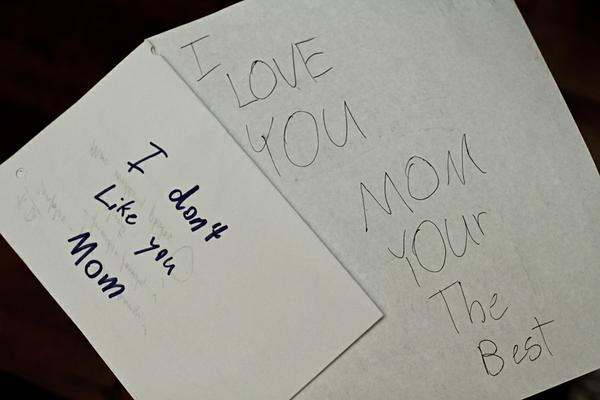 I don't
Like you
Mom
I
LOVE
YOU
MOM
YOUr
The
Best